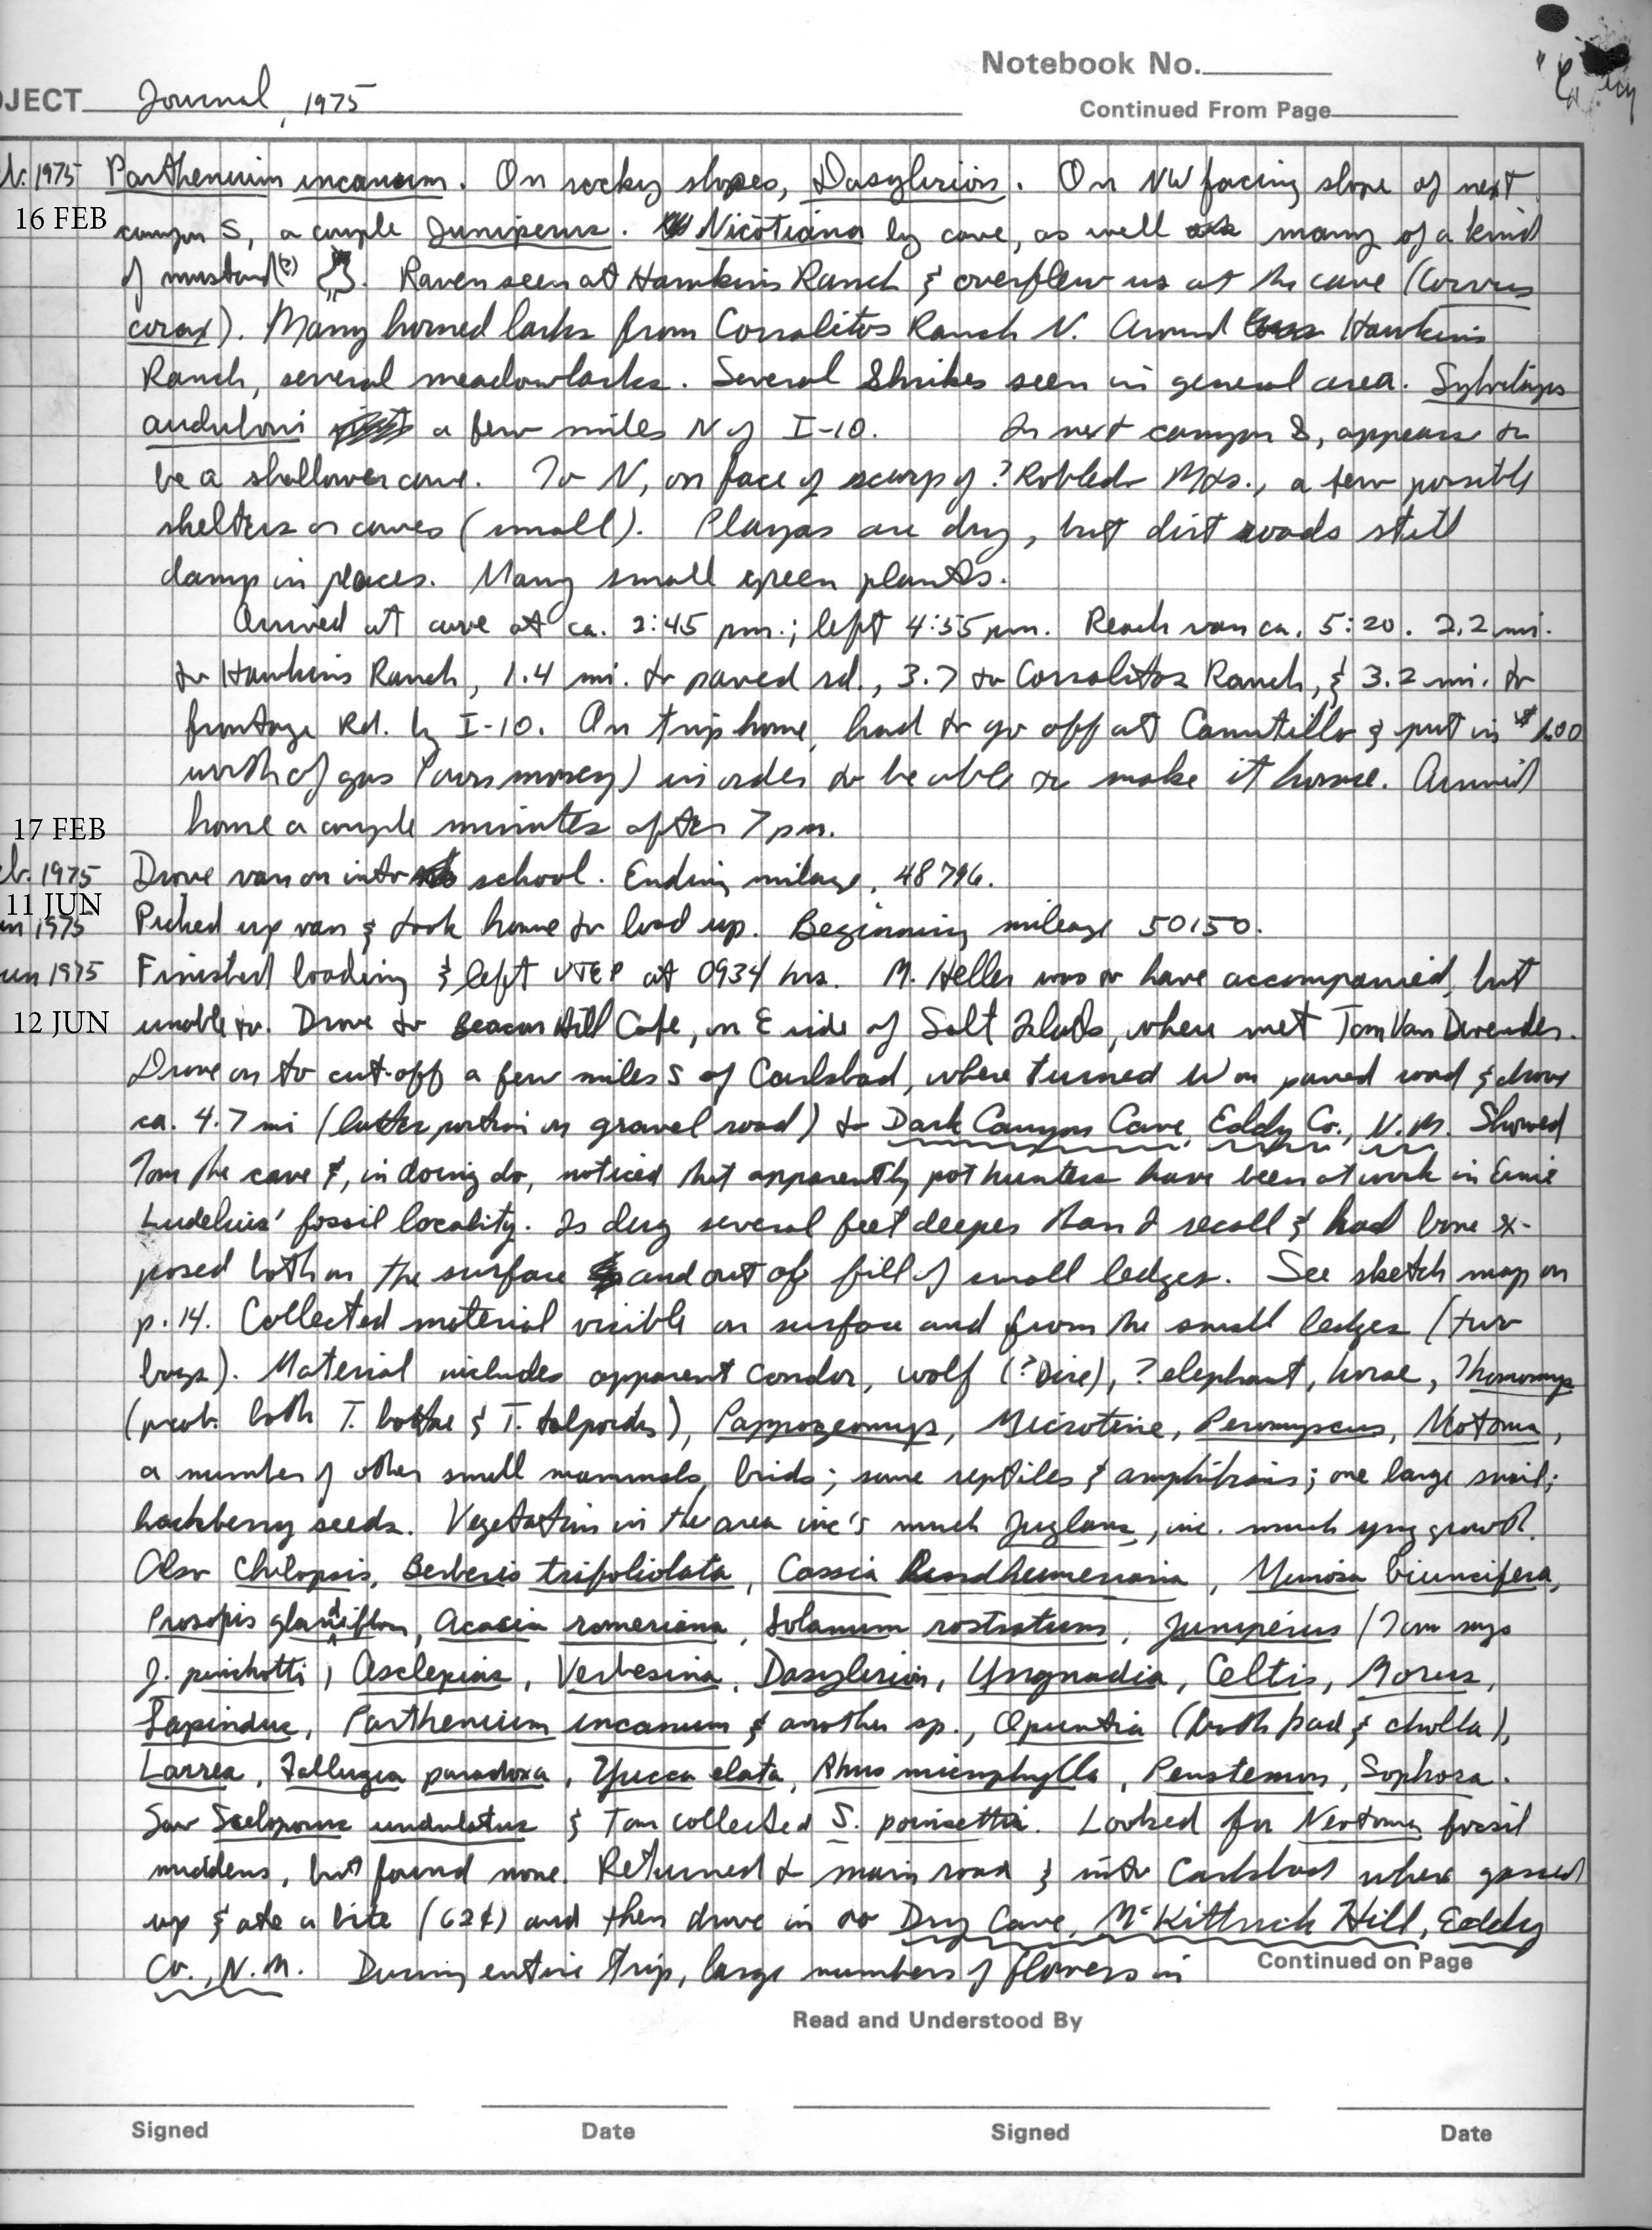 Notebook No.
OJECT Journal, 1975
Continued From Page
b. 1975 Parthenium incanum. On rocky slopes, Dasylirion. On NW facing slope of next
16 FEB canyon S, a couple Juniperus. Nicotiana by cave, as well as many of a kind
of mustard(?). Raven seen at Hawkins Ranch & overflew us at the cave (Corvus
corax). Many horned larks from Corralitos Ranch N. Around Hawkins
Ranch, several meadowlarks. Several Shrikes seen in general area. Sylvilagus
auduboni a few miles N of I-10. In next canyon S, appears to
be a shallower cave. To N, on face of scarp of ?Robledo Mts., a few possible
shelters or caves (small). Playas are dry, but dirt roads still
damp in places. Many small green plants.
Arrived at cave at ca. 2:45 pm.; left 4:55 pm. Reach van ca. 5:20. 2.2 mi.
to Hawkins Ranch, 1.4 mi. to paved rd., 3.7 to Corralitos Ranch, & 3.2 mi. to
frontage Rd. by I-10. On trip home, had to go off at Canutillo & put in $1.00
worth of gas (own money) in order to be able to make it home. Arrived
17 FEB home a couple minutes after 7 pm.
b. 1975 Drove van on into school. Ending milage, 48796.
11 JUN
un 1975 Picked up van & took home to load up. Beginning mileage 50150.
un 1975 Finished loading & left UTEP at 0934 hrs. M. Heller was to have accompanied, but
12 JUN unable to. Drove to Beacon Hill Cafe, on E side of Salt Flats, where met Tom Van Devender.
Drove on to cut-off a few miles S of Carlsbad, where turned W on paved road & drove
ca. 4.7 mi (latter portion on gravel road) to Dark Canyon Cave, Eddy Co., N.M. Showed
Tom the cave &, in doing so, noticed that apparently pot hunters have been at work in Ernie
Lundelius' fossil locality. Is dug several feet deeper than I recall & had bone ex-
posed both on the surface and out of fill of small ledges. See sketch map on
p. 14. Collected material visible on surface and from the small ledges (two
bags). Material includes apparent condor, wolf (?Dire), ?elephant, horse, Thomomys
(prob. both T. bottae & T. talpoides), Pappogeomys, Microtine, Peromyscus, Neotoma,
a number of other small mammals, birds; some reptiles & amphibians; one large snail;
hackberry seeds. Vegetation in the area inc's much Juglans, inc. much yng growth.
Also Chilopsis, Berberis trifoliolata, Cassia lindheimeriana, Mimosa biuncifera,
Prosopis glandiflora, Acacia romeriana, Solanum rostratum, Juniperus (Tom says
J. pinchotti), Asclepias, Verbesina, Dasylirion, Ungnadia, Celtis, Morus,
Sapindus, Parthenium incanum & another sp., Opuntia (both pad & cholla),
Larrea, Fallugia paradoxa, Yucca elata, Rhus microphylla, Penstemon, Sophora.
Saw Sceloporus undulatus & Tom collected S. poinsettii. Looked for Neotoma fossil
middens, but found none. Returned to main road & into Carlsbad where gassed
up & ate a bite (62¢) and then drove in to Dry Cave, McKittrick Hill, Eddy
Co., N.M. During entire trip, large numbers of flowers in
Continued on Page
Read and Understood By
Signed Date Signed Date